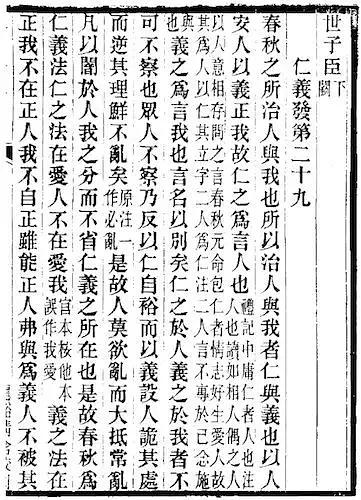 世子臣下闕
仁義發第二十九
春秋之所治人與我也所以治人與我者仁與義也以人
安人以義正我故仁之爲言人也禮記中庸仁者人也注人也讀如相人偶之人
以人意相存問之言春秋元命包仁者情志好生愛人故其爲人以仁其立字二人爲仁注二人言不專於己念施
與也義之爲言我也言名以別矣仁之於人義之於我者不
可不察也眾人不察乃反以仁自裕而以義設人詭其處
而逆其理鮮不亂矣原注一作必亂是故人莫欲亂而大抵常亂
凡以闇於人我之分而不省仁義之所在也是故春秋爲
仁義法仁之法在愛人不在愛我官本桉他本誤作我愛義之法在
正我不在正人我不自正雖能正人弗與爲義人不被其